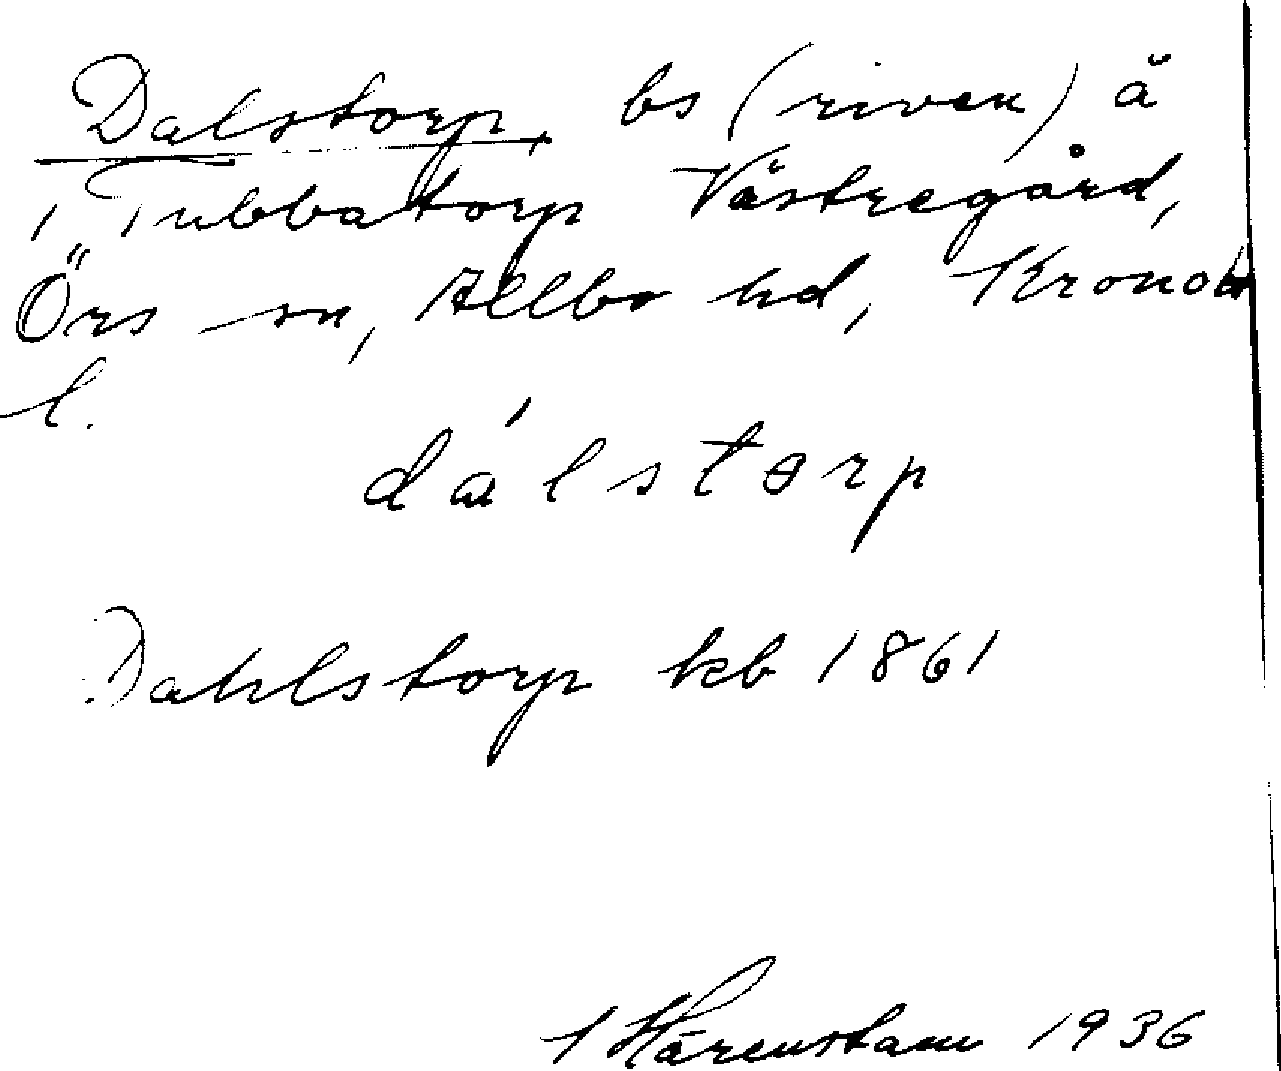 Dalstorp, bs (riven) å
Tubbatorp Västregård,
Örs sn, Allbo hd, Kronob
l.
dálstorp
Dahlstorp kb 1861
Härenstam 1936